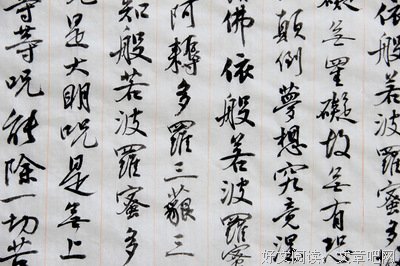 依般若波羅蜜多
礙無罣礙故無有恐
顛倒夢想究竟涅
佛依般若波羅蜜
阿耨多羅三藐三
知般若波羅蜜多
咒是大明咒是無上
等等咒能除一切苦
好文阅读，文章吧网